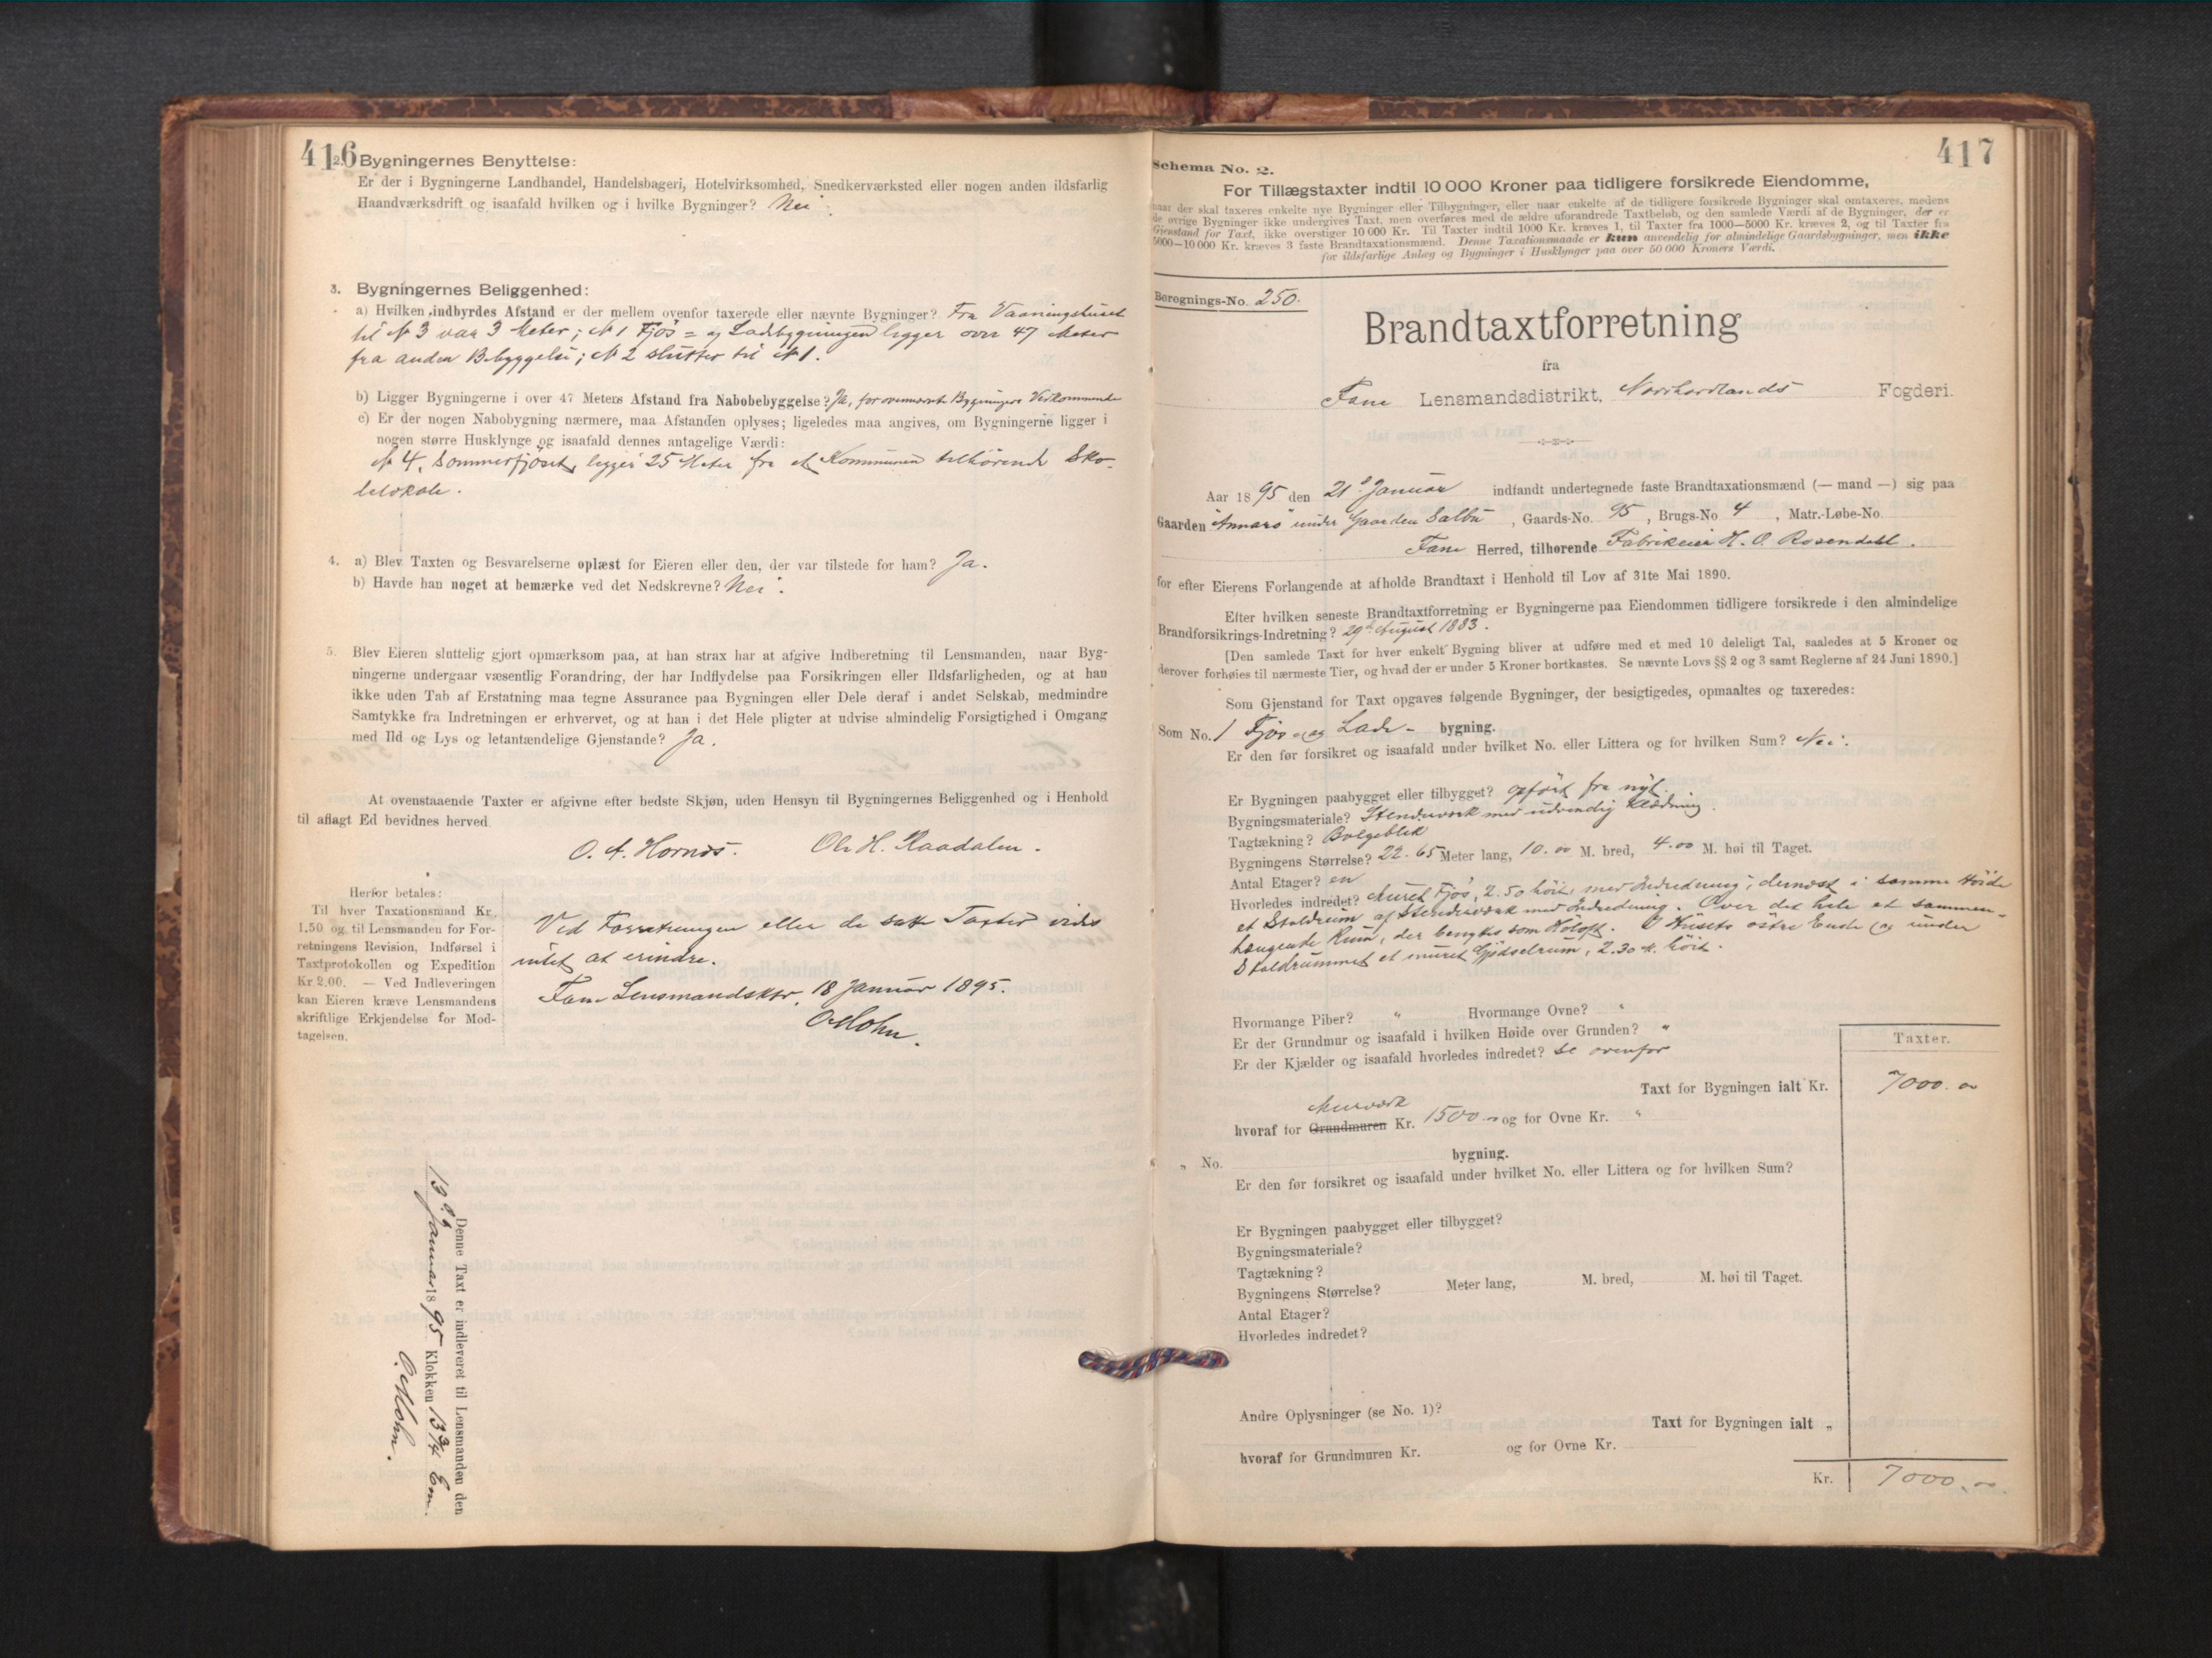 416
2. Bygningernes Benyttelse:
Er der i Bygningerne Landhandel, Handelsbageri, Hotelvirksomhed, Snedkerværksted eller nogen anden ildsfarlig
Haandværksdrift og isaafald hvilken og i hvilke Bygninger? Nei.
3. Bygningernes Beliggenhed:
a) Hvilken indbyrdes Afstand er der mellem ovenfor taxerede eller nævnte Bygninger? Fra Vaaningshuset
til No 3 var 3 Meter; No 1 Fjøs= og Ladebygningen ligger over 47 Meter
fra anden Bebyggelse; No 2 slutter til No 1.
b) Ligger Bygningerne i over 47 Meters Afstand fra Nabobebyggelse? Ja, for ovennævnte Bygningers Vedkommende
c) Er der nogen Nabobygning nærmere, maa Afstanden oplyses; ligeledes maa angives, om Bygningerne ligger i
nogen større Husklynge og isaafald dennes antagelige Værdi:
No 4, Sommerfjöset, ligger 25 Meter fra et Kommunen tilhörende Sko-
lelokale.
4. a) Blev Taxten og Besvarelserne oplæst for Eieren eller den, der var tilstede for ham? Ja.
b) Havde han noget at bemærke ved det Nedskrevne? Nei.
5. Blev Eieren sluttelig gjort opmærksom paa, at han strax har at afgive Indberetning til Lensmanden, naar Byg-
ningerne undergaar væsentlig Forandring, der har Indflydelse paa Forsikringen eller Ildsfarligheden, og at han
ikke uden Tab af Erstatning maa tegne Assurance paa Bygningen eller Dele deraf i andet Selskab, medmindre
Samtykke fra Indretningen er erhvervet, og at han i det Hele pligter at udvise almindelig Forsigtighed i Omgang
med Ild og Lys og letantændelige Gjenstande? Ja.
At ovenstaaende Taxter er afgivne efter bedste Skjøn, uden Hensyn til Bygningernes Beliggenhed og i Henhold
til aflagt Ed bevidnes herved.
O. A. Hornös. Ole H. Raadalen.
Herfor betales:
Til hver Taxationsmand Kr.
1.50 og til Lensmanden for For-
retningens Revision, Indførsel i
Taxtprotokollen og Expedition
Kr 2.00. — Ved Indleveringen
kan Eieren kræve Lensmandens
skriftlige Erkjendelse for Mod-
tagelsen.
Ved Forretningen eller de satte Taxter vides
intet at erindre.
Fane Lensmandsktr, 18 Januar 1895.
O Mohn.
Denne Taxt er indleveret til Lensmanden den
13de Januar 1895 Klokken 13/4 Em.
O. Mohn.
417
Schema No. 2.
For Tillægstaxter indtil 10 000 Kroner paa tidligere forsikrede Eiendomme,
naar der skal taxeres enkelte nye Bygninger eller Tilbygninger, eller naar enkelte af de tidligere forsikrede Bygninger skal omtaxeres, medens
de øvrige Bygninger ikke undergives Taxt, men overføres med de ældre uforandrede Taxtbeløb, og den samlede Værdi af de Bygninger, der er
Gjenstand for Taxt, ikke overstiger 10 000 Kr. Til Taxter indtil 1000 Kr. kræves 1, til Taxter fra 1000—5000 Kr. kræves 2, og til Taxter fra
5000—10 000 Kr. kræves 3 faste Brandtaxationsmænd. Denne Taxationsmaade er kun anvendelig for almindelige Gaardsbygninger, men ikke
for ildsfarlige Anlæg og Bygninger i Husklynger paa over 50 000 Kroners Værdi.
Beregnings-No. 250.
Brandtaxtforretning
fra
Fane Lensmandsdistrikt, Nordhordlands Fogderi.
Aar 1895 den 21de Januar indfandt undertegnede faste Brandtaxationsmænd (— mand —) sig paa
Gaarden "Annars" under Gaarden Salbu, Gaards-No. 95, Brugs-No 4, Matr.-Løbe-No.
Fane Herred, tilhørende Fabrikeier H. O. Rosendahl.
for efter Eierens Forlangende at afholde Brandtaxt i Henhold til Lov af 31te Mai 1890.
Efter hvilken seneste Brandtaxtforretning er Bygningerne paa Eiendommen tidligere forsikrede i den almindelige
Brandforsikrings-Indretning? 29de August 1883.
[Den samlede Taxt for hver enkelt Bygning bliver at udføre med et med 10 deleligt Tal, saaledes at 5 Kroner og
derover forhøies til nærmeste Tier, og hvad der er under 5 Kroner bortkastes. Se nævnte Lovs §§ 2 og 3 samt Reglerne af 24 Juni 1890.]
Som Gjenstand for Taxt opgaves følgende Bygninger, der besigtigedes, opmaaltes og taxeredes:
Som No. 1 Fjøs- og Lade- bygning.
Er den før forsikret og isaafald under hvilket No. eller Littera og for hvilken Sum? Nei.
Er Bygningen paabygget eller tilbygget? opført fra nyt.
Bygningsmateriale? Stenderverk med udvendig Klædning.
Tagtækning? Bølgeblik
Bygningens Størrelse? 22.65 Meter lang, 10.00 M. bred, 4.00 M. høi til Taget.
Antal Etager? en
Hvorledes indredet? Muret Fjøs, 2.50 höit, med Indredning; dernæst i samme Höide
et Staldrum af Stenderværk med Indredning. Over det hele et sammen-
hængende Rum, der benyttes som Höloft. I Husets östre Ende og under
Staldrummet et muret Gjödselrum, 2.30 M. höit.
Hvormange Piber? " Hvormange Ovne? "
Er der Grundmur og isaafald i hvilken Høide over Grunden? "
Er der Kjælder og isaafald hvorledes indredet? Se ovenfor
Taxter.
Taxt for Bygningen ialt Kr. 7000.00
Murværk
hvoraf for Grundmuren Kr. 1500.00 og for Ovne Kr. "
" No. bygning.
Er den før forsikret og isaafald under hvilket No. eller Littera og for hvilken Sum?
Er Bygningen paabygget eller tilbygget?
Bygningsmateriale?
Tagtækning?
Bygningens Størrelse? Meter lang, M. bred, M. høi til Taget.
Antal Etager?
Hvorledes indredet?
Andre Oplysninger (se No. 1)?
Taxt for Bygningen ialt "
hvoraf for Grundmuren Kr. og for Ovne Kr.
Kr. 7000.00